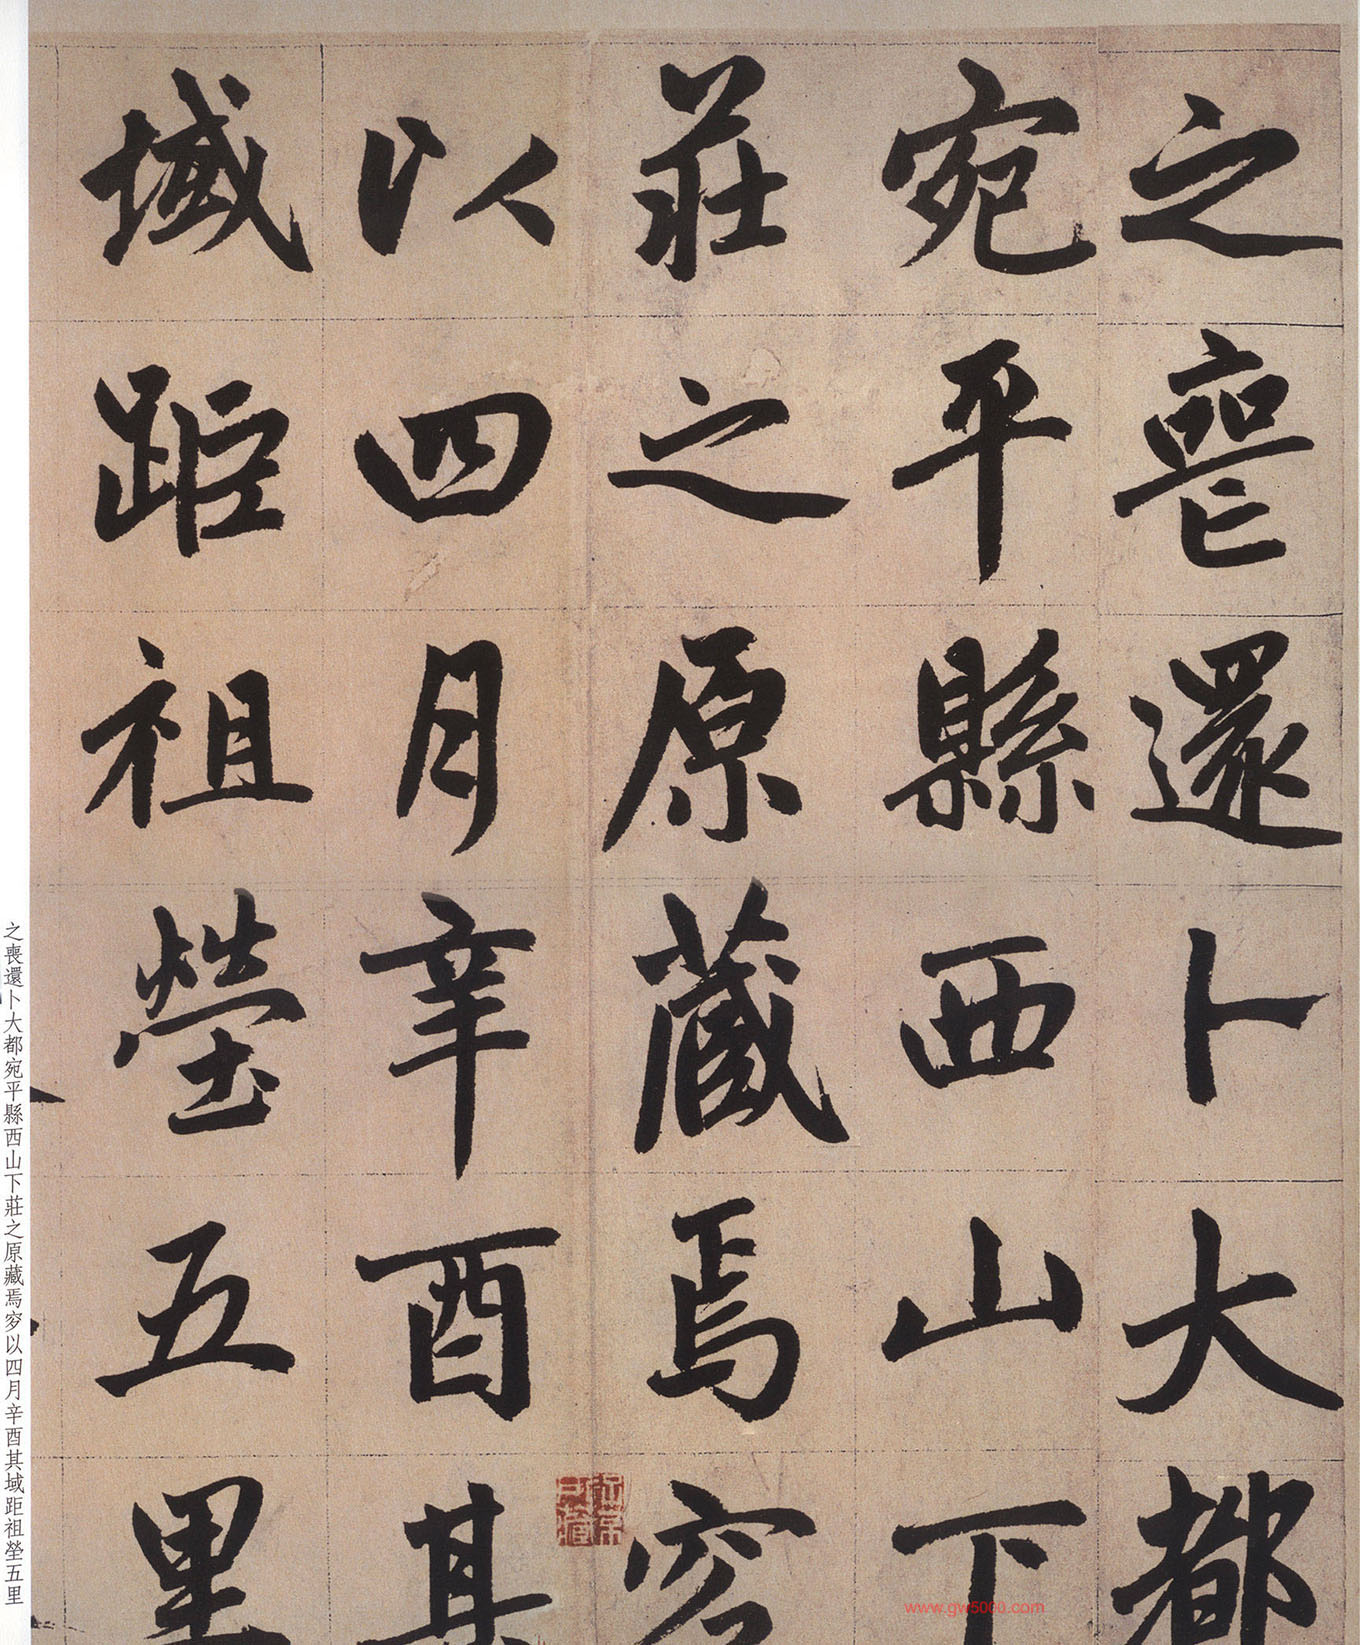 之喪還卜大都
宛平縣西山下
莊之原藏焉穸
以四月辛酉其
域距祖塋五里
之喪還卜大都宛平縣西山下莊之原藏焉穸以四月辛酉其域距祖塋五里
www.gw5000.com